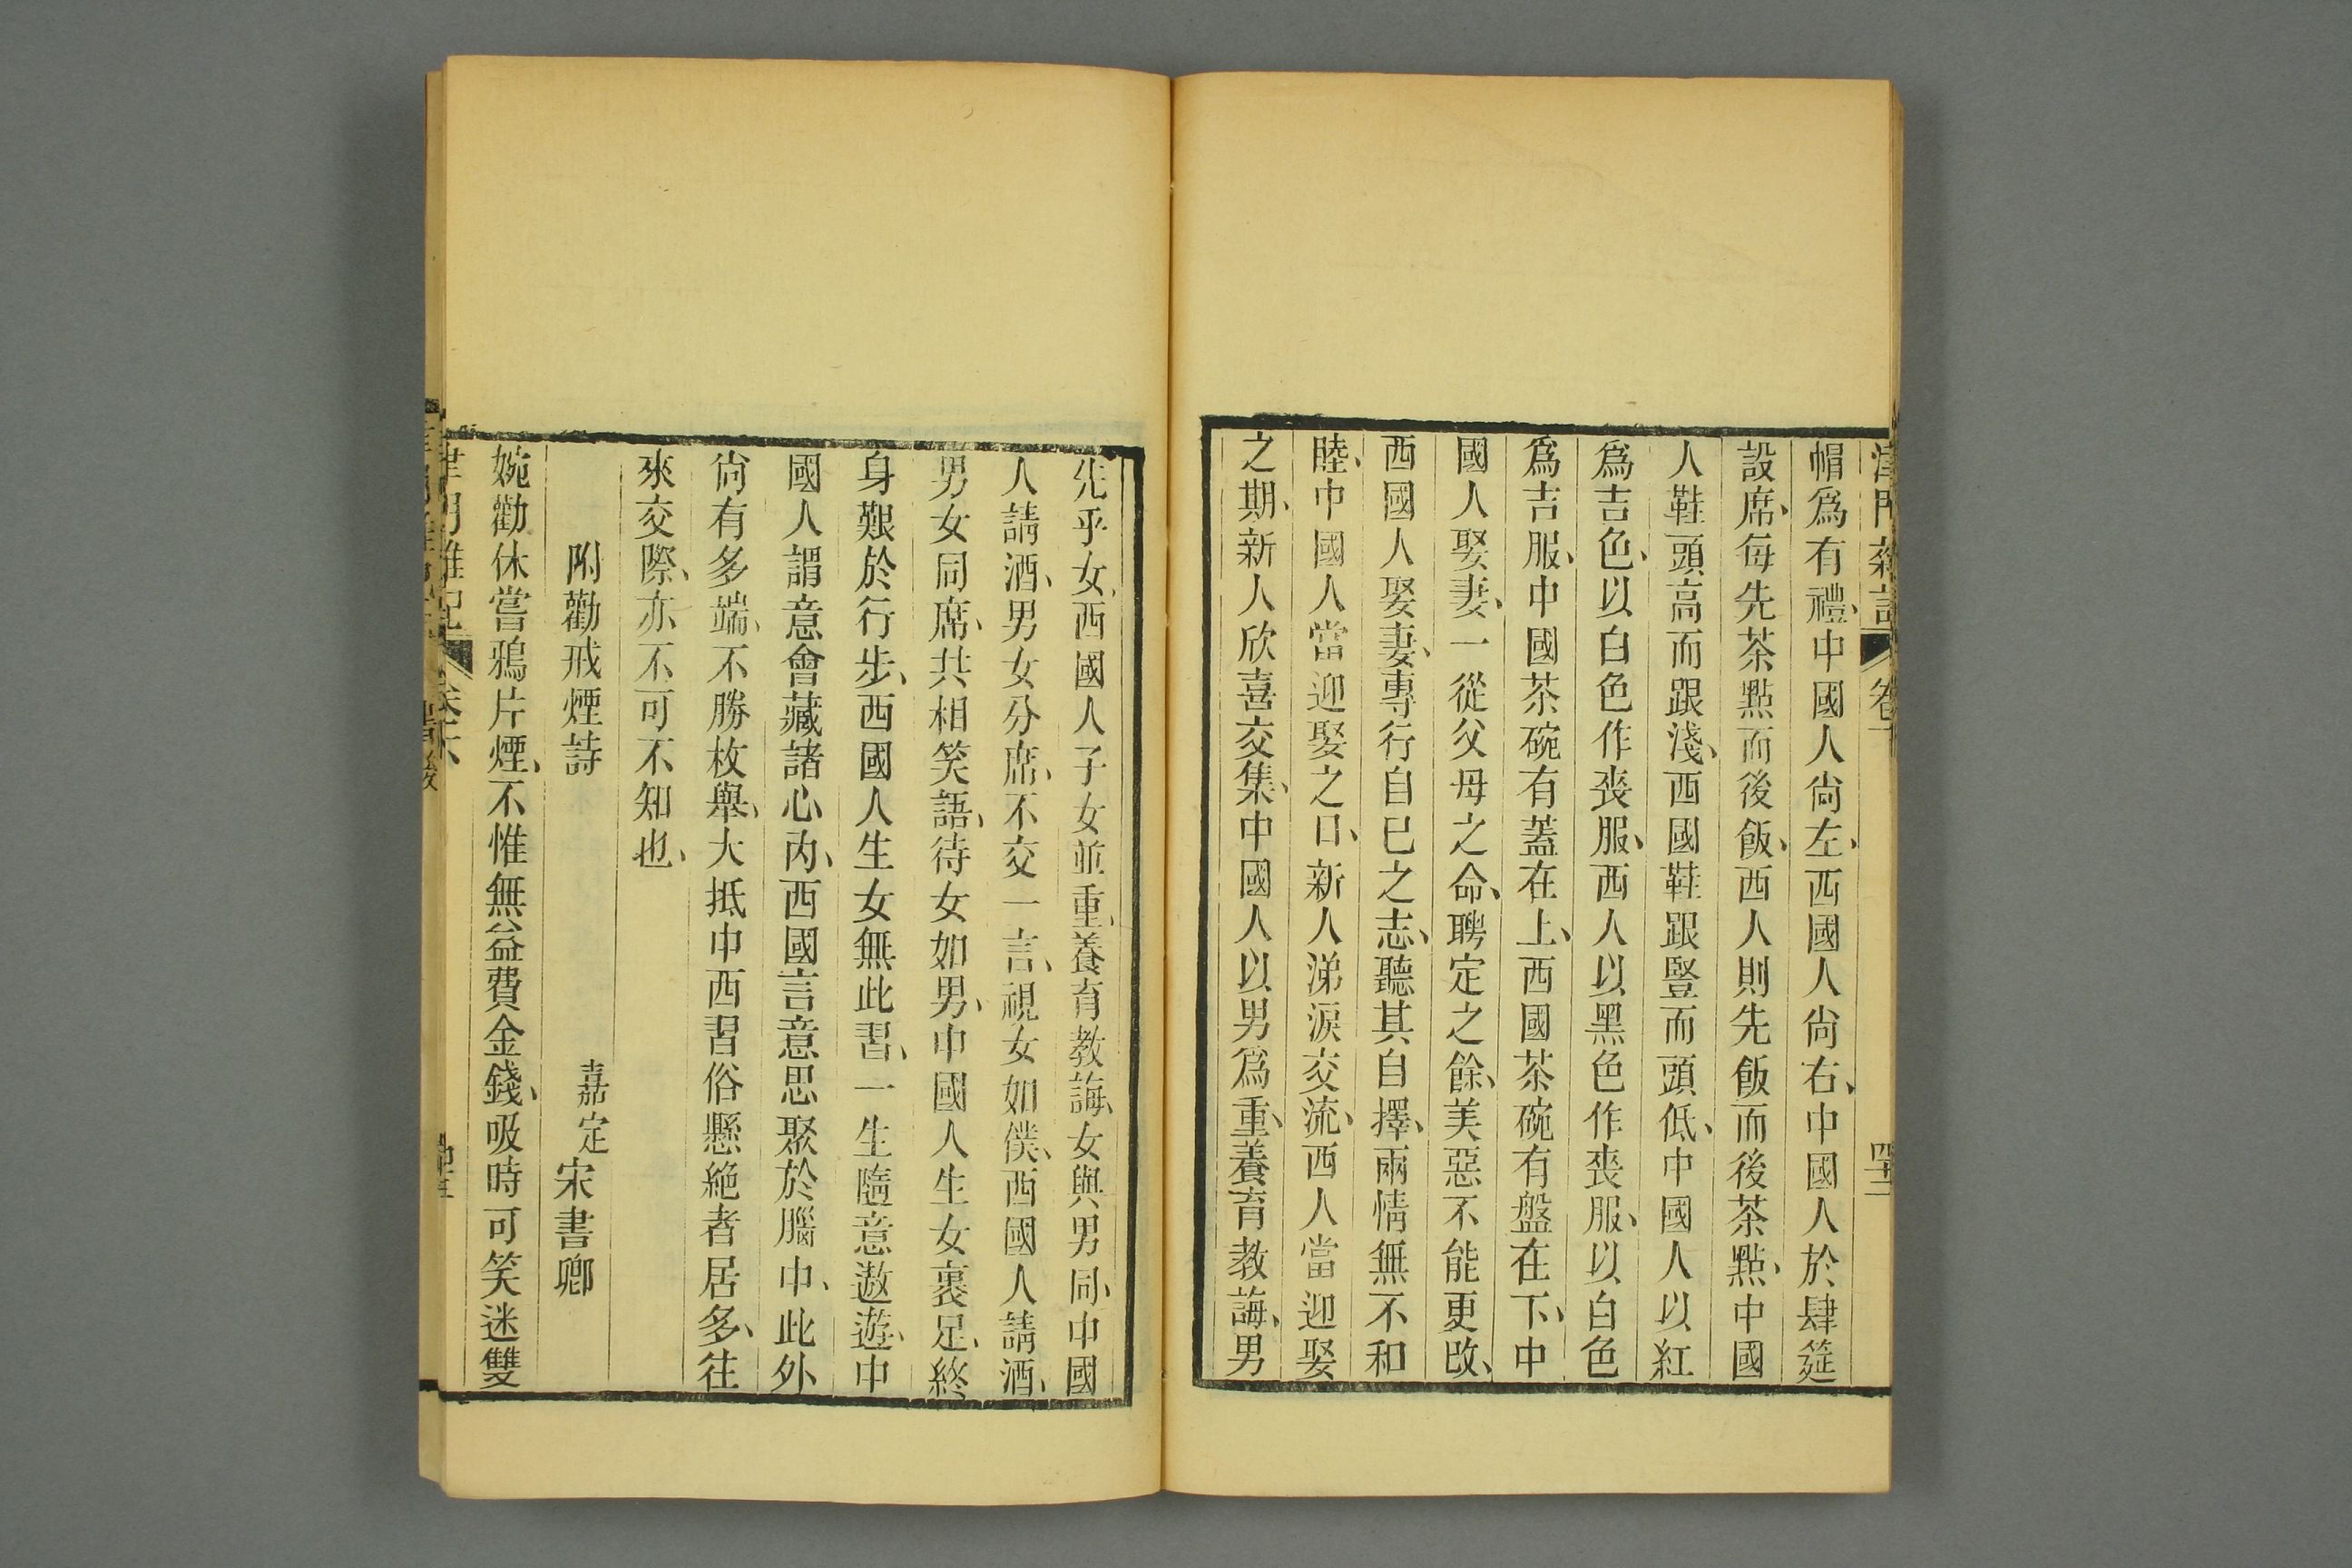 津門雜記 卷下 四十二
帽爲有禮、中國人尙左、西國人尙右、中國人於肆筵
設席、每先茶點而後飯、西人則先飯而後茶點、中國
人鞋頭高而跟淺、西國鞋跟豎而頭低、中國人以紅
爲吉色、以白色作喪服、西人以黑色作喪服、以白色
爲吉服、中國茶碗有蓋在上、西國茶碗有盤在下、中
國人娶妻、一從父母之命、聘定之餘、美惡不能更改、
西國人娶妻、專行自已之志、聽其自擇、兩情無不和
睦、中國人當迎娶之日、新人涕淚交流、西人當迎娶
之期、新人欣喜交集、中國人以男爲重、養育教誨、男
先乎女、西國人子女並重、養育教誨、女與男同、中國
人請酒、男女分席、不交一言、視女如僕、西國人請酒、
男女同席、共相笑語、待女如男、中國人生女裹足、終
身艱於行步、西國人生女無此習、一生隨意遨遊、中
國人謂意會藏諸心內、西國言意思聚於腦中、此外
尙有多端、不勝枚舉、大抵中西習俗懸絕者居多、往
來交際、亦不可不知也、
附勸戒煙詩 嘉定宋書卿
婉勸休嘗鴉片煙、不惟無益費金錢、吸時可笑迷雙
津門雜記 卷下